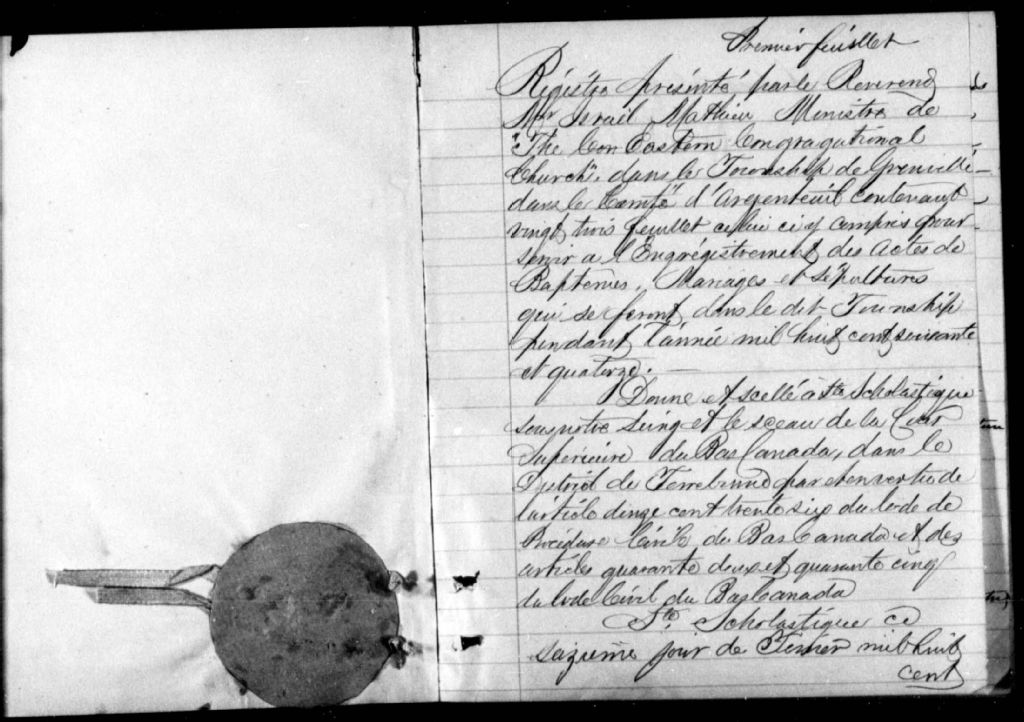 Premier feuillet
Régistre présenté par le Reverend
Mr Israël Mathieu Ministre de
"The Eastern Congragational
Church", dans le Township de Grenville
dans le Comté d'Argenteuil contenant
vingt trois feuillet celui ciy compris pour
servir a l'Engrégistrement des Actes de
Baptêmes, Mariages et Sépultures
qui se feront dans le dit Township
pendant l'année mil huit cent soixante
et quatorze.
Donné et scellé à Ste Scholastique
sous notre Seing et le sceau de la Cour
Supérieure du Bas Canada, dans le
District de Terrebonne par et en vertu de
l'article douze cent trente six du Code de
Procédure Civile du Bas Canada et des
articles quarante deux et quarante cinq
du Code Civil du Bas Canada
Ste Scholastique ce
jour de Fevrier mil huit
cent